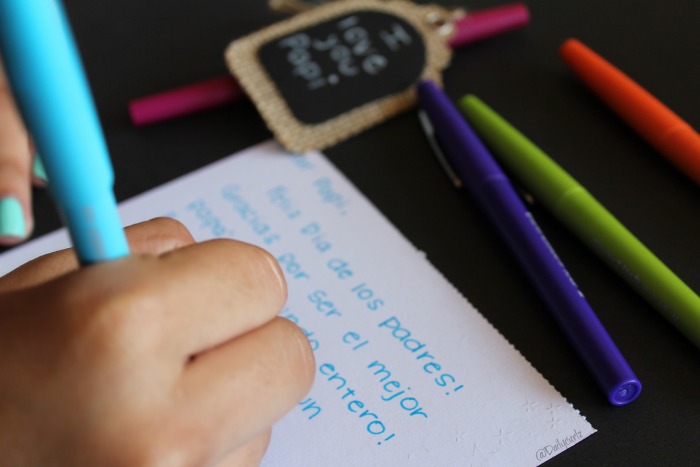 I
love
you
Papi
Papi,
Feliz Día de los padres!
Gracias por ser el mejor
papá entero!
un
@DailyCurlz